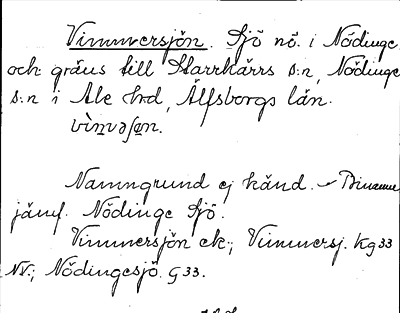 Vimmersjön. Sjö nö. i Nödinge
och gräns till Starrkärrs s:n, Nödinge
s:n i Ale hrd, Älfsborgs län.
Namngrund ej känd. – Binamn
jämf. Nödinge Sjö.
Vimmersjön ek.; Vimmersj. Kg 33
NV.; Nödingesjö. G 33.